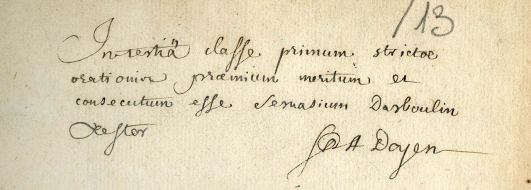 /13
In tertiâ classe primum strictoe
orationis proemium meritum et
consecutum esse Servasium Darboulin
testor
DA Doyen